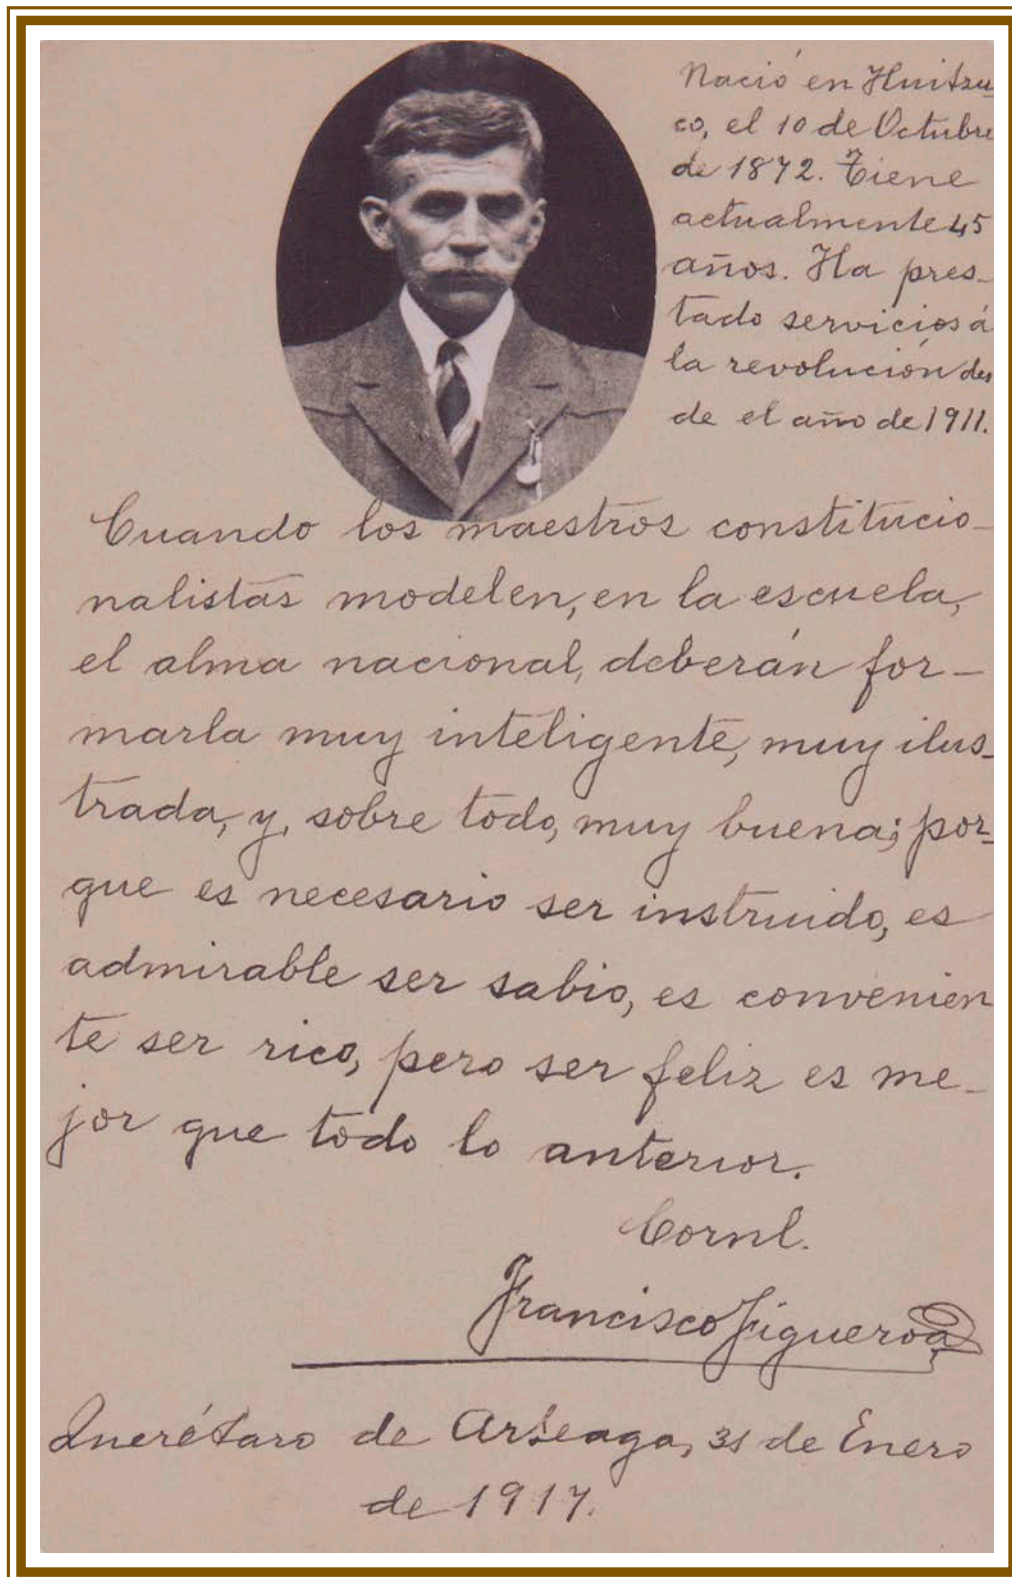 Nació en Huitzu-
co, el 10 de Octubre
de 1872. Tiene
actualmente 45
años. Ha pres-
tado servicios á
la revolución des
de el año de 1911.
Cuando los maestros constitucio-
nalistas modelen, en la escuela,
el alma nacional, deberán for-
marla muy inteligente, muy ilus-
trada, y, sobre todo, muy buena; por-
que es necesario ser instruido, es
admirable ser sabio, es convenien
te ser rico, pero ser feliz es me-
jor que todo lo anterior.
Cornl.
Francisco Figueroa
Querétaro de Arteaga, 31 de Enero
de 1917.